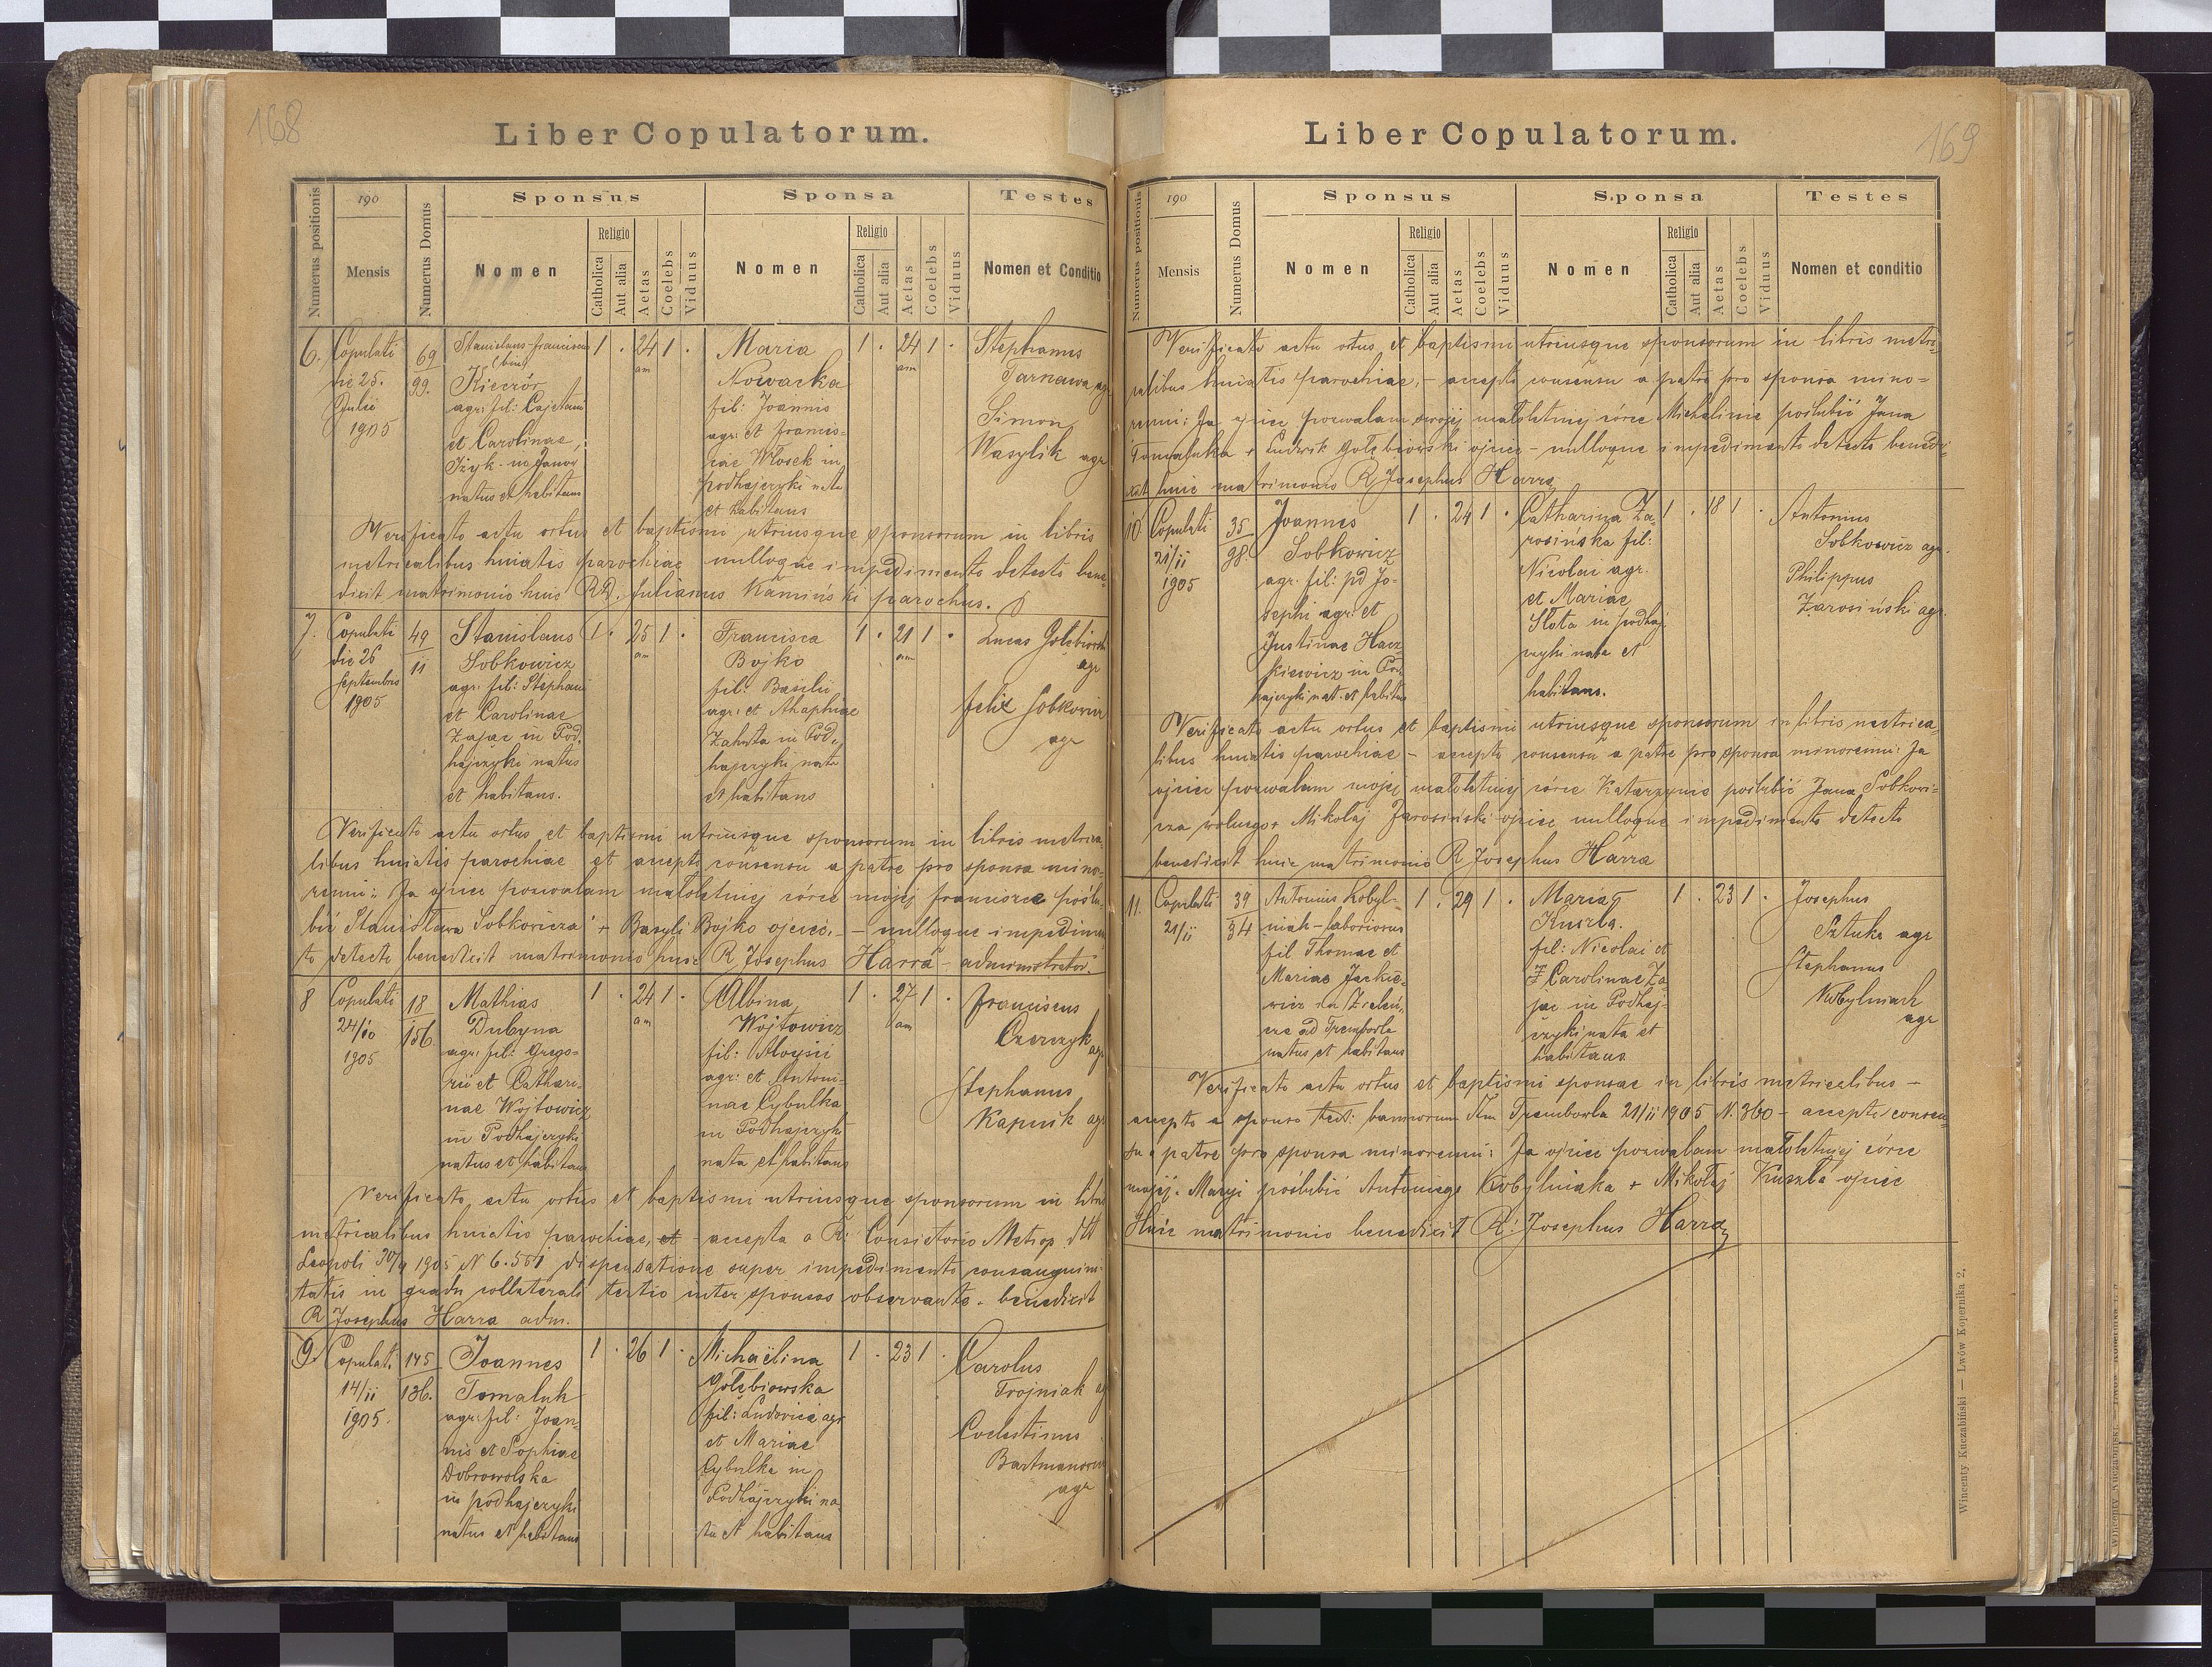 168
Liber Copulatorum.
Numerus positionis
190
Mensis
Numerus Domus
Sponsus
Nomen
Religio
Catholica
Aut alia
Aetas
Coelebs
Viduus
Sponsa
Nomen
Religio
Catholica
Aut alia
Aetas
Coelebs
Viduus
Testes
Nomen et Conditio
6.
Copulati
die 25.
Julii
1905
69
99.
Stanislaus-Franciscus
(bin)
Kieczór
agr: fil: Cajetani
et Carolinae
Iżyk in Janow
natus et habitans
1 . 24 1 .
am
Maria
Nowacka
fil: Joannis
agr: et Francis-
cae Włosek in
podhajczyki nata
et habitans
1 . 24 1 .
am
Stephanus
Tarnawa agr
Simon
Wasylik agr
Verificato actu ortus et baptismi utriusque sponsorum in libris
metricalibus huiatis parochiae nulloque impedimento detecto bene-
dixit matrimonio huic RD. Julianus Kamiński parochus.
7.
Copulati
die 26
Septembris
1905
49
11
Stanislaus
Sobkowicz
agr. fil: Stephani
et Carolinae
Zając in Pod-
hajczyki natus
et habitans.
1 . 25 1 .
am
Francisca
Bojko
fil: Basilii
agr: et Ahaphiae
Zahuta in Pod-
hajczyki nata
et habitans
1 . 21 1 .
am
Lucas Gołębiowski
agr
Felix Sobkowicz
agr
Verificato actu ortus et baptismi utriusque sponsorum in libris metrica
libus huiatis parochiae et accepto consensu a patre pro sponsa mino-
renni: Ja ojciec pozwalam małoletniej córce mojej Franciszce poślu-
bić Stanisława Sobkowicza + Bazyli Bojko ojciec. - nulloque impedimen
to detecto benedixit matrimonio huic R Josephus Harra - administrator.
8
Copulati
24/10
1905
18
156.
Mathias
Dubyna
agr: fil: Grego-
rii et Cathari-
nae Wojtowicz
in Podhajczyki
natus et habitans
1 . 24 1 .
am
Albina
Wojtowicz
fil: Aloysii
agr: et Antoni-
nae Cybulka
in Podhajczyki
nata et habitans
1 . 27 1 .
am
Franciscus
Czerczyk agr
Stephanus
Kapuik agr
Verificato actu ortus et baptismi utriusque sponsorum in libris
metricalibus huiatis parochiae, et accepta a R: Consistorio Metrop. dtt
Leopoli 30/9 1905 N 6.581 dispensatione super impedimento consanguini-
tatis in gradu collaterali tertio inter sponsos observante. benedixit
R Josephus Harra adm.
9.
Copulati
14/11
1905.
145
136.
Joannes
Tomaluk
agr: fil: Joan-
nis et Sophiae
Dobrowolska
in podhajczyki
natus et habitans
1 . 26 1 .
Michaëlina
Gołębiowska
fil: Ludovici agr
et Mariae
Cybulka in
Podhajczyki na
ta et habitans
1 . 23 1 .
Carolus
Trojniak agr
Coelestinus
agr
169
Liber Copulatorum.
Numerus positionis
190
Mensis
Numerus Domus
Sponsus
Nomen
Religio
Catholica
Aut alia
Aetas
Coelebs
Viduus
Sponsa
Nomen
Religio
Catholica
Aut alia
Aetas
Coelebs
Viduus
Testes
Nomen et conditio
Verificato actu ortus et baptismi utriusque sponsorum in libris metri-
calibus huiatis parochiae, - accepto consensu a patre pro sponsa mino-
renni: Ja ojciec pozwalam swojej małoletniej córce Michalinie poślubić Jana
Tomaluka + Ludwik Gołębiowski ojciec - nulloque impedimento detecto benedi-
xit huic matrimonio R Josephus Harra
10
Copulati
21/11
1905
35
98.
Joannis
Sobkowicz
agr. fil: pd Jo-
sephi agr: et
Justinae Hacz
kiewicz in Pod-
hajczyki nat. et habitans
1 . 24 1 .
Catharina Ża-
rosińska fil:
Nicolai agr.
et Mariae
Słota in podhaj
czyki nata et
habitans.
1 . 18 1 .
Antonius
Sobkowicz agr.
Philippus
Żarosiński agr.
Verificato actu ortus et baptismi utriusque sponsorum in libris metrica-
libus huiatis parochiae - accepto consensu a patre pro sponsa minorenni: Ja
ojciec pozwalam mojej małoletniej córce Katarzynie poślubić Jana Sobkowi-
cza wolnego + Mikołaj Żarosiński ojciec nulloque impedimento detecto
benedixit huic matrimonio R Josephus Harra
11.
Copulati
21/11
39
34
Antonius Kobyl-
niak - laboriosus
fil Thomae et
Mariae Jackie-
wicz in
ad Trembowla
natus et habitans
1 . 29 1 .
Maria
Kuszla.
fil: Nicolai et
Carolinae Za
jac in Podhaj-
czyki nata et
habitans
1 . 23 1 .
Josephus
Sztuka agr
Stephanus
Kobylniak
agr
Verificato actu ortus et baptismi sponsae in libris metricalibus -
accepto a sponso test: bannorum dtn Trembowla 21/11 1905 N. 360 - accepto consen-
su a patre pro sponsa minorenni: Ja ojciec pozwalam małoletniej córce
mojej Maryi poślubić Antoniego Kobylniaka + Mikołaj Kuszla ojciec
Huic matrimonio benedixit R: Josephus Harra
Wincenty Kuczabiński — Lwów Kopernika 2.